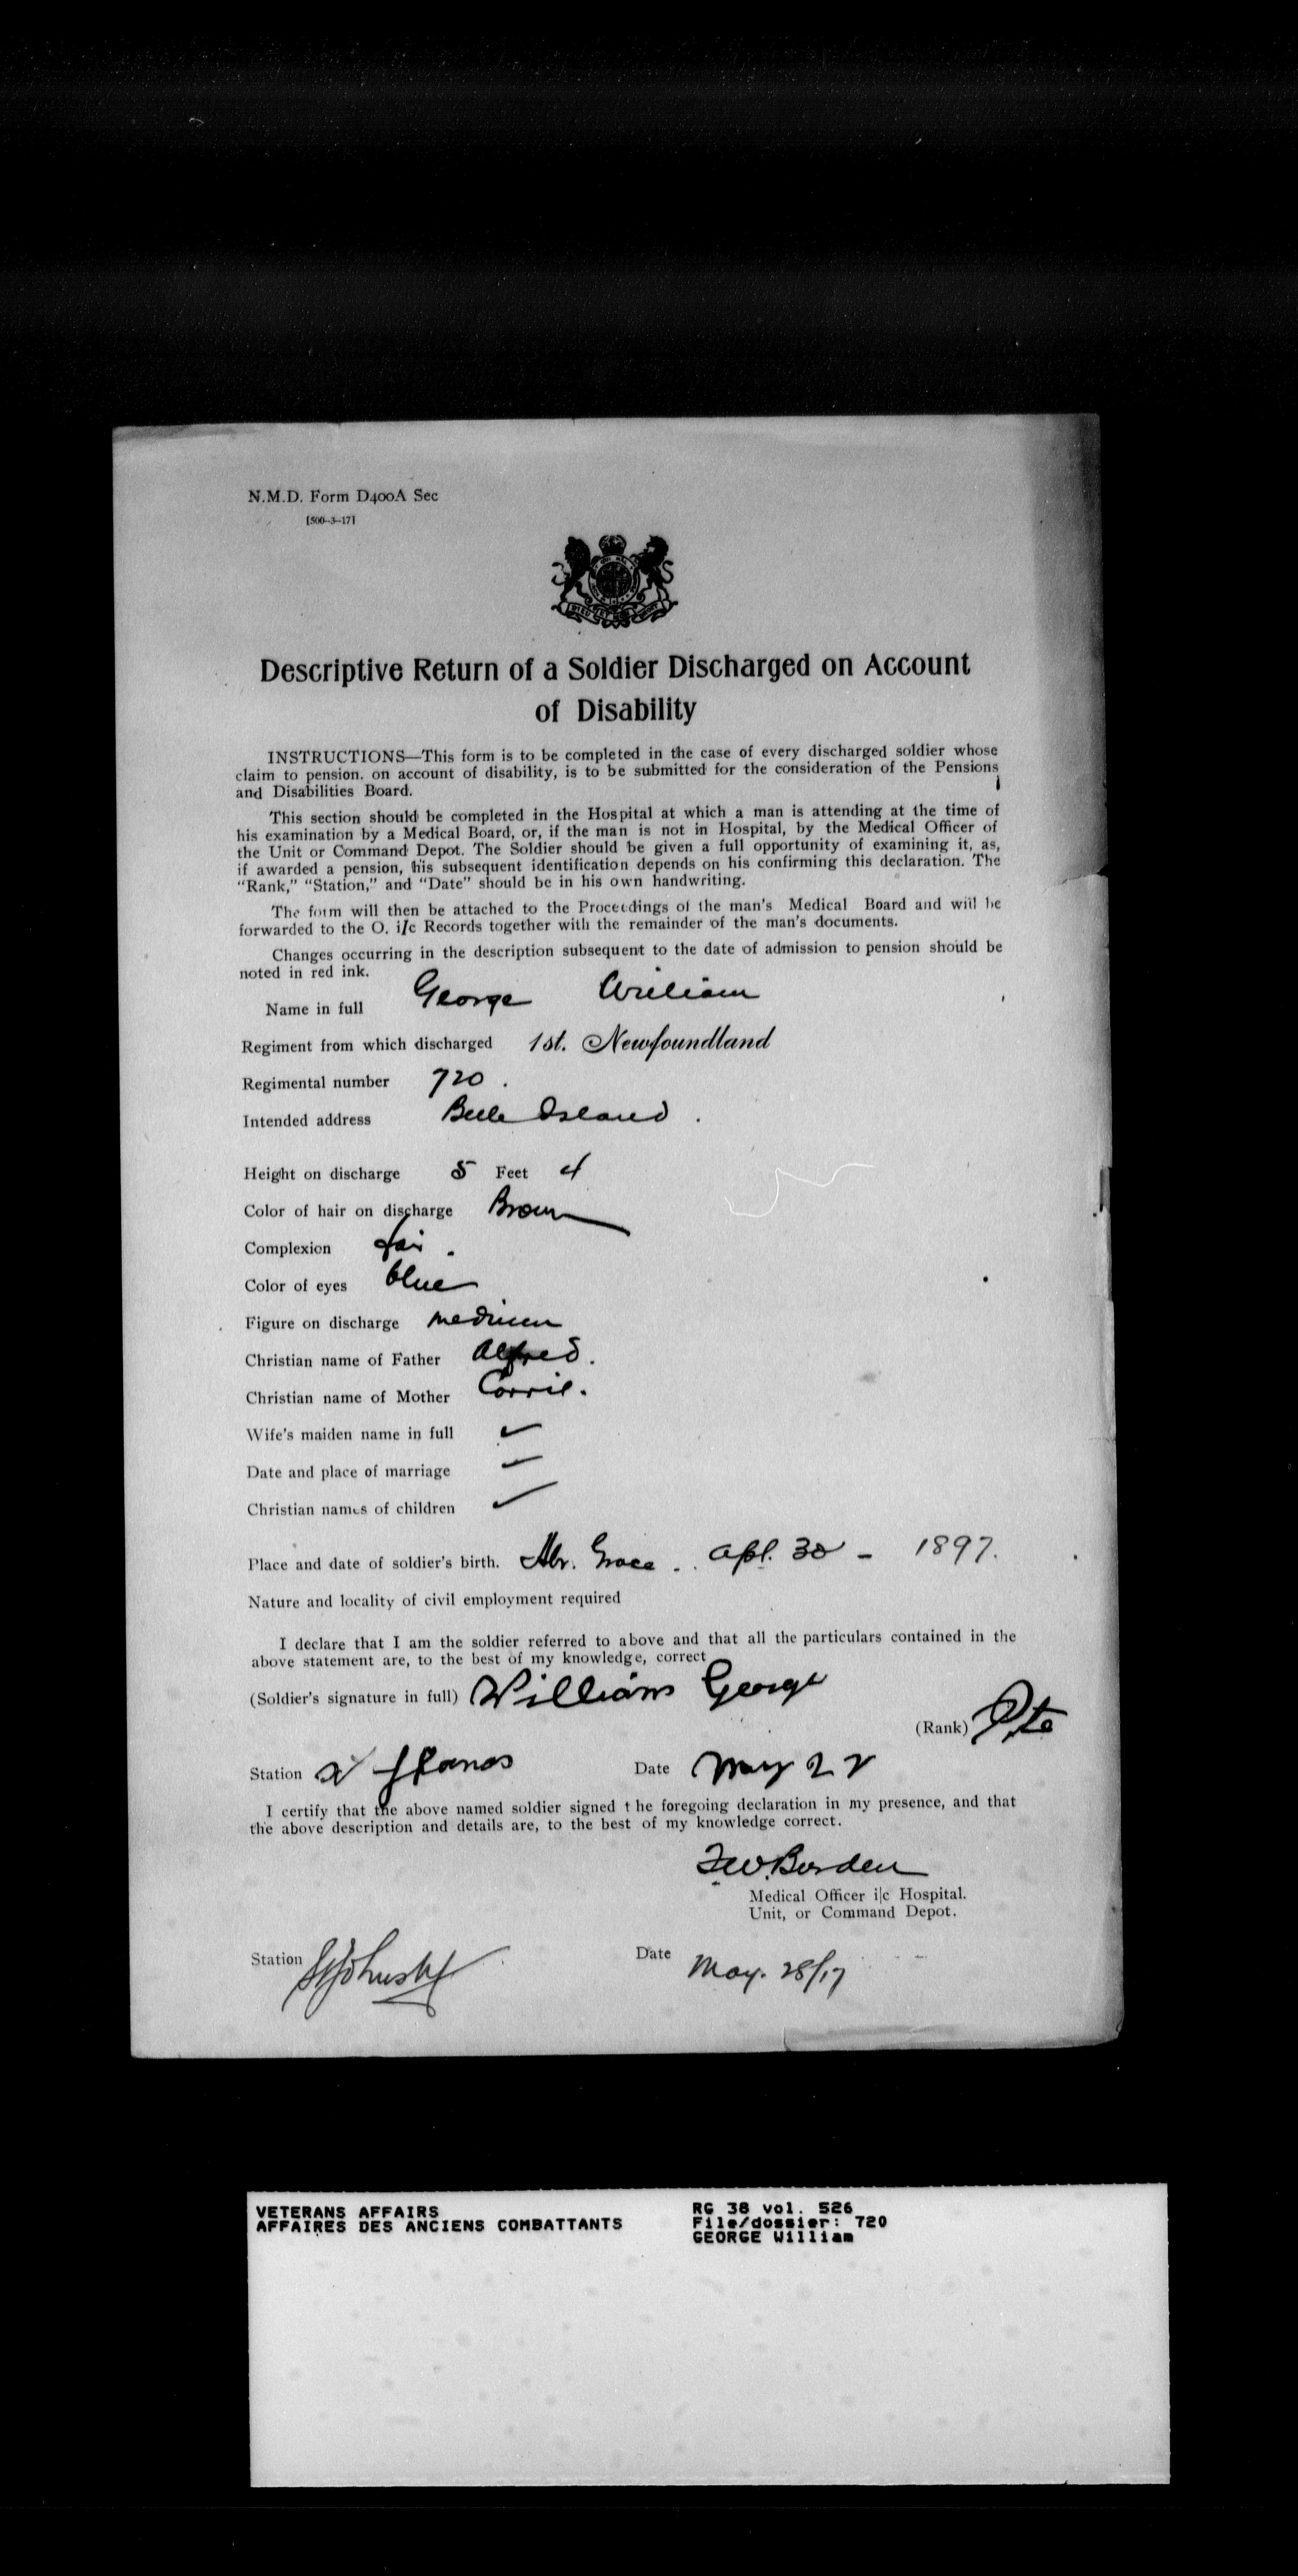 N.M.D. Form D400A Sec
[500-3-17]
DIEU ET MON DROIT
Descriptive Return of a Soldier Discharged on Account
of Disability
INSTRUCTIONS—This form is to be completed in the case of every discharged soldier whose
claim to pension. on account of disability, is to be submitted for the consideration of the Pensions
and Disabilities Board.
This section should be completed in the Hospital at which a man is attending at the time of
his examination by a Medical Board, or, if the man is not in Hospital, by the Medical Officer of
the Unit or Command Depot. The Soldier should be given a full opportunity of examining it, as,
if awarded a pension, his subsequent identification depends on his confirming this declaration. The
"Rank," "Station," and "Date" should be in his own handwriting.
The form will then be attached to the Proceedings of the man's Medical Board and will be
forwarded to the O. i/c Records together with the remainder of the man's documents.
Changes occurring in the description subsequent to the date of admission to pension should be
noted in red ink.
Name in full George William
Regiment from which discharged 1st. Newfoundland
Regimental number 720.
Intended address Belle Island.
Height on discharge 5 Feet 4
Color of hair on discharge Brown
Complexion fair.
Color of eyes blue
Figure on discharge medium
Christian name of Father Alfred.
Christian name of Mother Corrie.
Wife's maiden name in full ✓
Date and place of marriage ✓
Christian names of children ✓
Place and date of soldier's birth. Hbr. Grace.. Apl. 30 - 1897.
Nature and locality of civil employment required
I declare that I am the soldier referred to above and that all the particulars contained in the
above statement are, to the best of my knowledge, correct
(Soldier's signature in full) William George
(Rank) Pte
Station Date May 22
I certify that the above named soldier signed the foregoing declaration in my presence, and that
the above description and details are, to the best of my knowledge correct.
F.W. Burden
Medical Officer i|c Hospital.
Unit, or Command Depot.
Station St Johns Nf Date May. 28/17
VETERANS AFFAIRS
AFFAIRES DES ANCIENS COMBATTANTS
RG 38 vol. 526
File/dossier: 720
GEORGE William